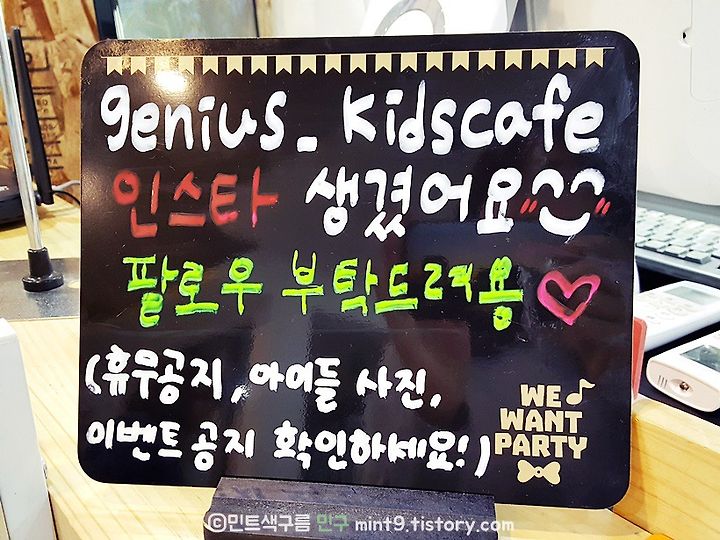 genius_kidscafe
인스타 생겼어요
팔로우 부탁드려용
(휴무공지, 아이들 사진,
이벤트공지 확인하세요!)
WE
WANT
PARTY
©민트색구름 민구 mint9.tistory.com